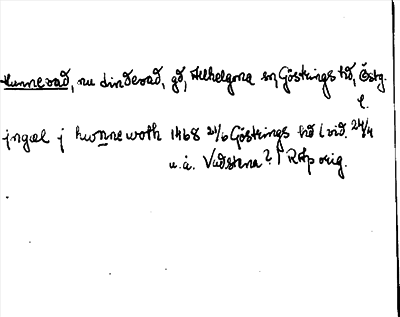 Hunnerad, nu Linderad, gd, Allhelgona sn, Göstrings hd, Östg.
l.
jngæl j hwnnewoth 1468 21/6 Göstrings hd (vid. 24/4
u.å. Vadstena?) RAp orig.